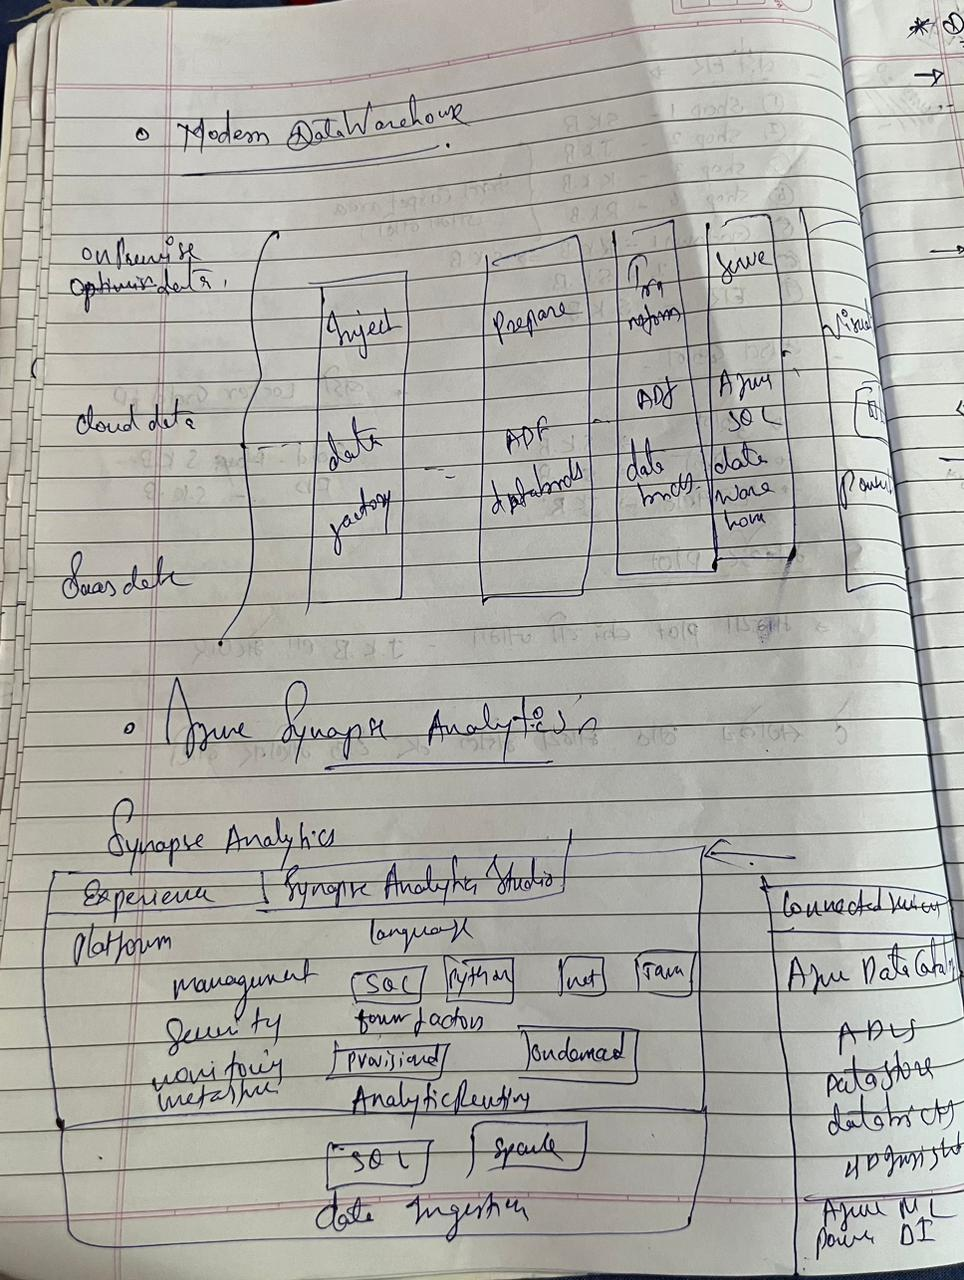 Modern DataWarehouse
OnPremise
data,
Cloud data
Saas data
Inject
data
factory
Prepare
ADF
databricks
Tra
nsform
ADF
data
bricks
Serve
Azure
SQL
data
ware
house
Visual
Power
Azure Synapse Analytics
Synapse Analytics
Experience Synapse Analytics Studio
Platform language
management SQL Python net Java
Security form factors
monitoring Provisioned Ondemad
metastore Analytic Runtimy
SQL Spark
data Ingestion
Connected
Azure Data Catal
ADLS
Datastore
databricks
Azure ML
Power BI